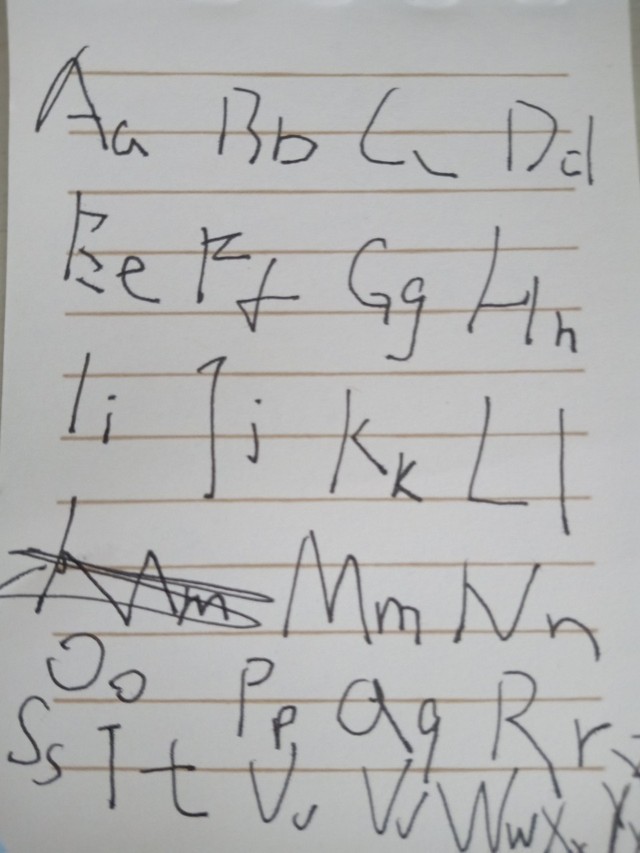 Aa Bb Cc Dd
Ee Ff Gg Hh
Ii Jj Kk Ll
Mm Nn
Oo Pp Qq Rr
Ss Tt Uu Vv Ww Xx